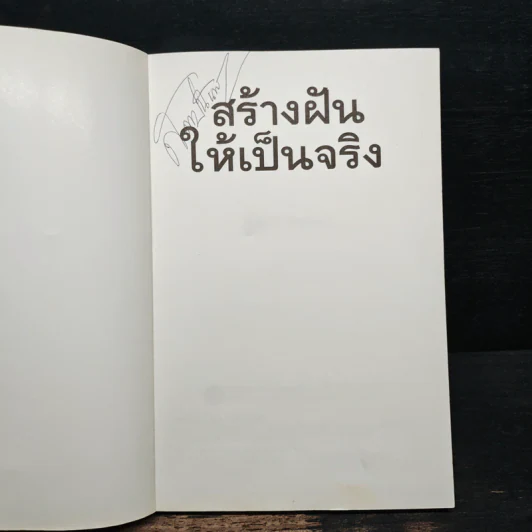 สร้างฝัน
ให้เป็นจริง